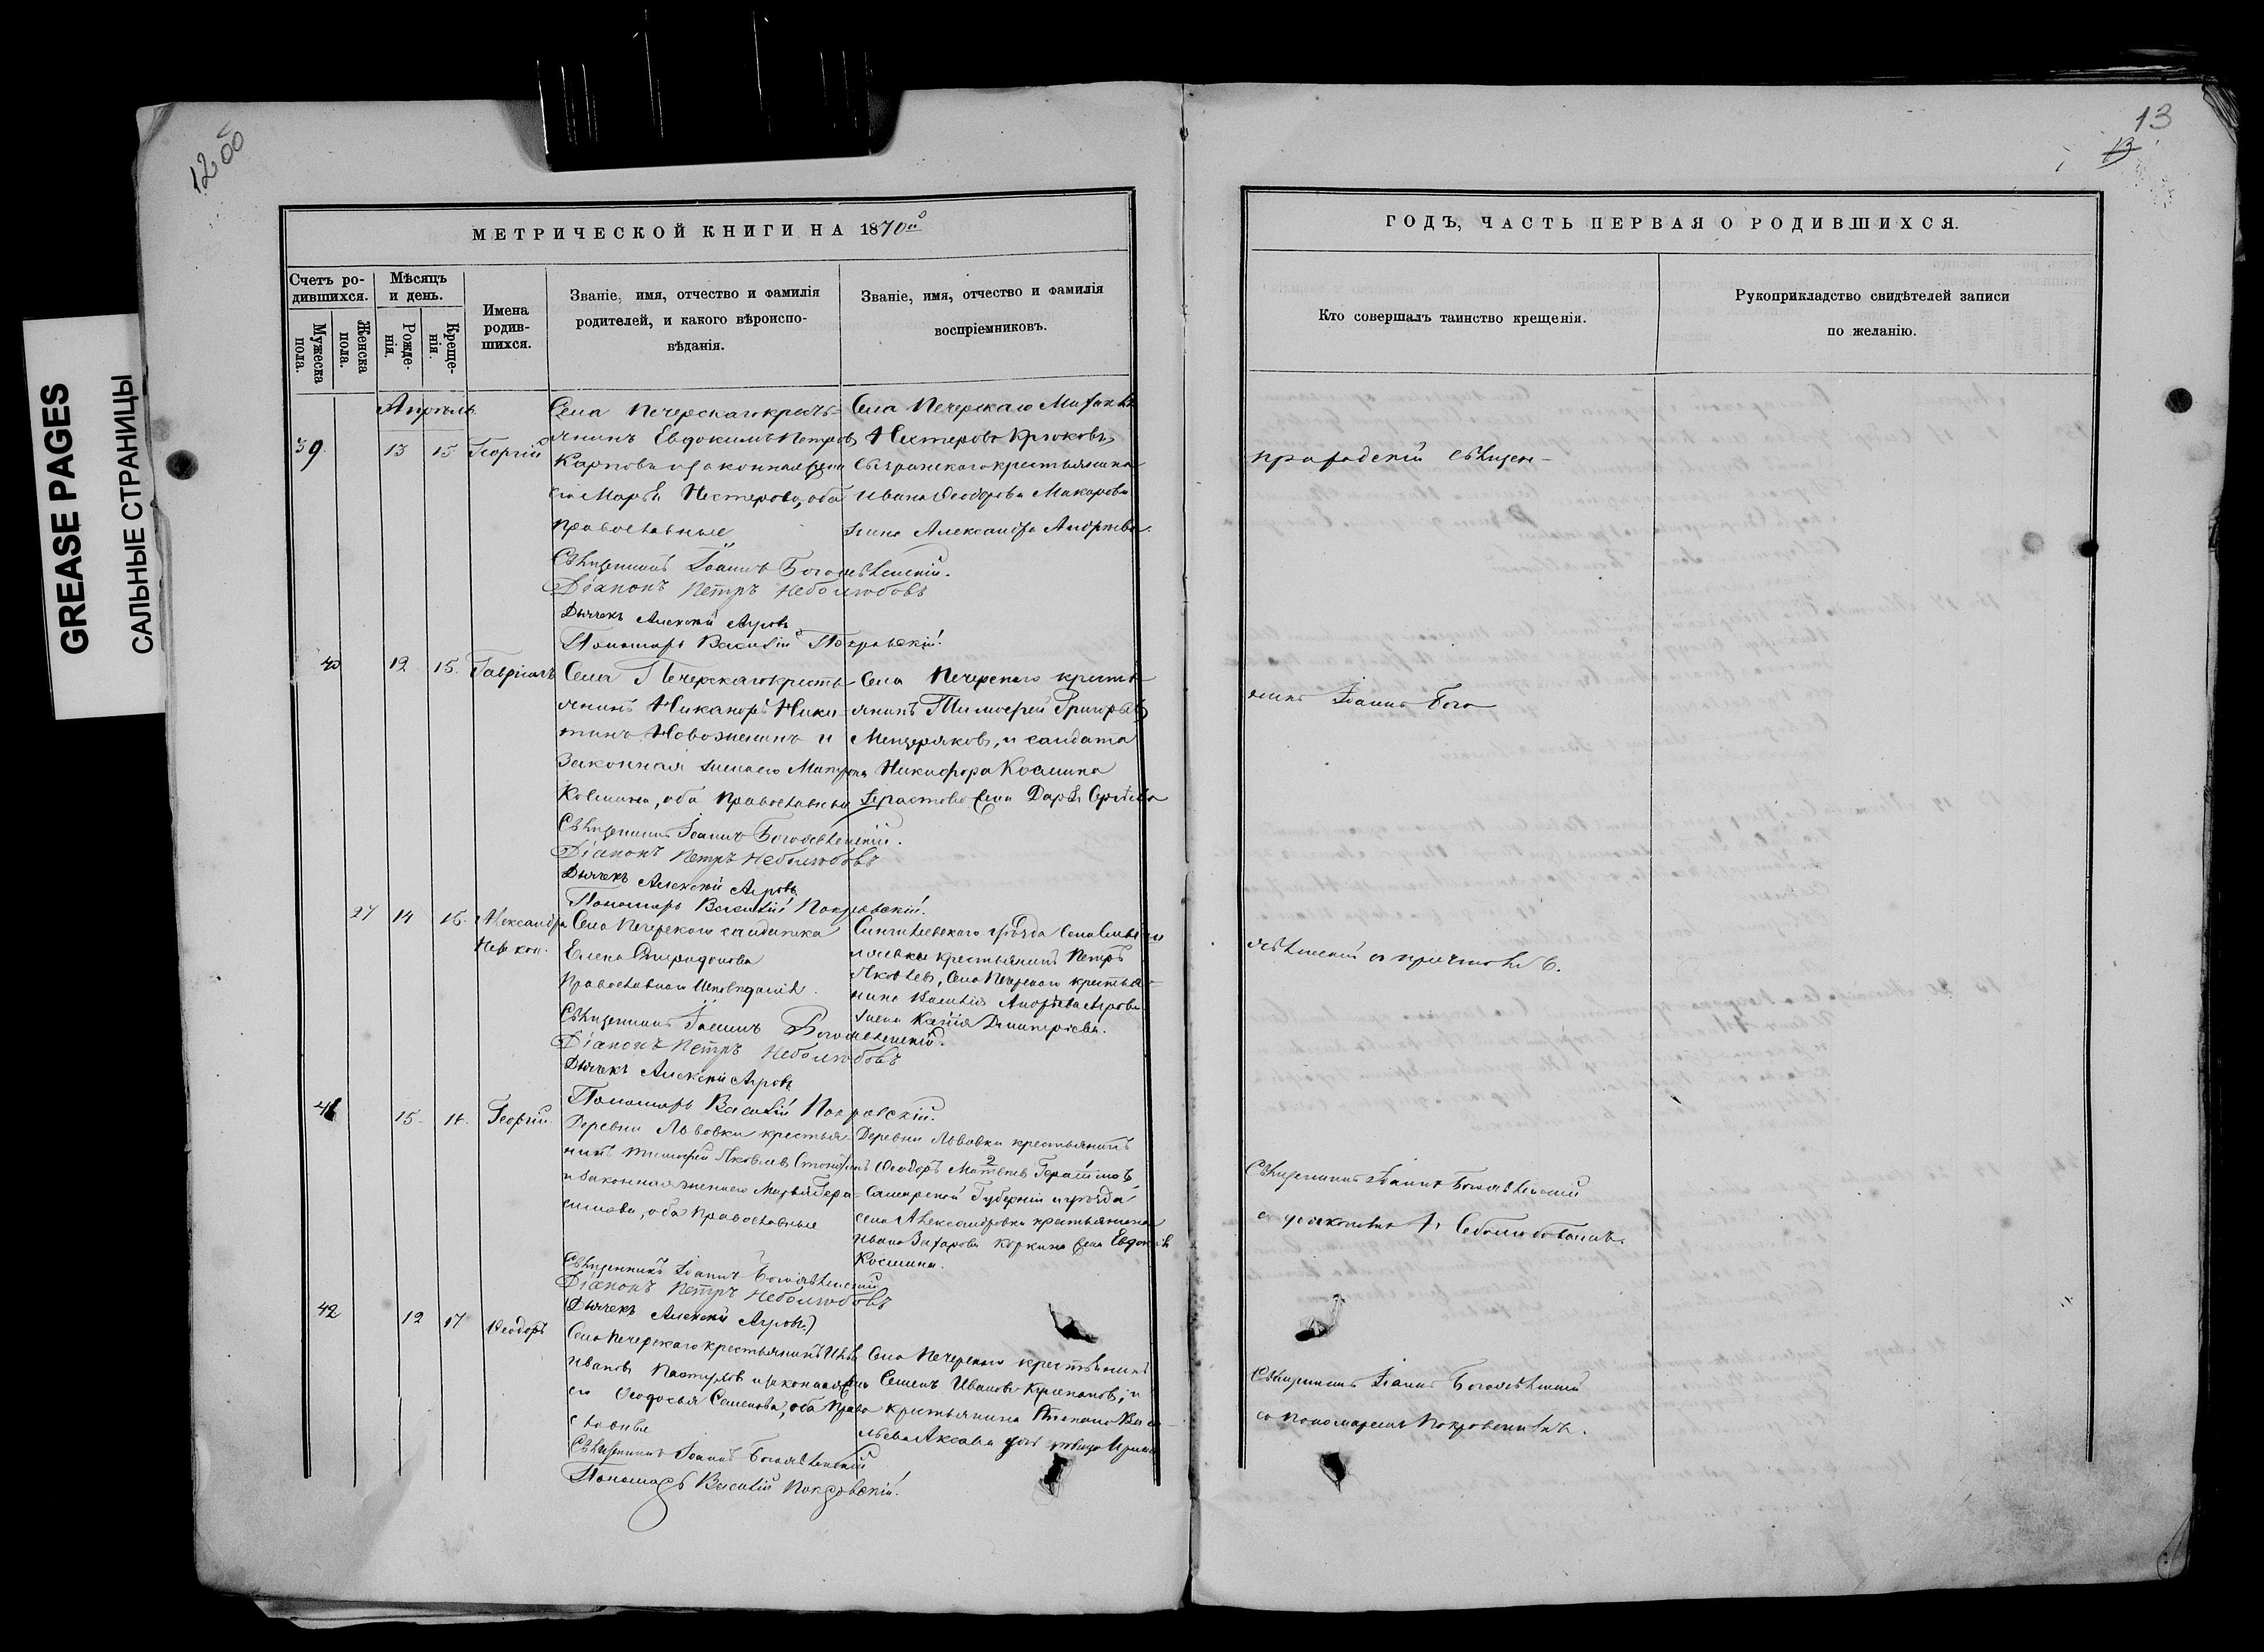 GREASE PAGES
САЛЬНЫЕ СТРАНИЦЫ
1200
13
13
МЕТРИЧЕСКОЙ КНИГИ НА 1870й
Счетъ ро-
дившихся.
Мужеска
пола.
Женска
пола.
Мѣсяцъ
и день.
Рожде-
нія.
Креще-
нія.
Имена
родив-
шихся.
Званіе, имя, отчество и фамилія
родителей, и какого вѣроиспо-
вѣданія.
Званіе, имя, отчество и фамилія
воспріемниковъ.
ГОДЪ, ЧАСТЬ ПЕРВАЯ О РОДИВШИХСЯ.
Кто совершалъ таинство крещенія.
Рукоприкладство свидѣтелей записи
по желанію.
Апрѣль
39 13 15 Георгій
Села Печерскаго кресть-
янинъ Евдокимъ Петровъ
Карповъ и законная жена
его Марѳа Нестерова, оба
православные
Села Печерскаго
Нестеровъ Крюковъ,
крестьянина
Ивана Ѳеодорова Макарова
жена Александра Андреева.
Священникъ Іоаннъ Богоявленскій.
Діаконъ Петръ Неболюбовъ
Дьячекъ Алексей Агровъ
Пономарь Василій Покровскій.
40 12 15. Гавріилъ
Села Печерскаго кресть-
янинъ Никаноръ Ники-
тинъ Новоженинъ и
законная жена его Матрона
Козмина, оба православные
Села Печерскаго кресть-
янинъ Тимофей Григорьевъ
Мещеряковъ, и солдата
Никифора Козмина
жена Дарья Сергѣева
Священникъ Іоаннъ Богоявленскій.
Діаконъ Петръ Неболюбовъ
Дьячекъ Алексей Агровъ
Пономарь Василій Покровскій.
27 14 15. Александра
Села Печерскаго солдатка
Елена Спиридонова
Православнаго исповѣданія.
Сингилеевскаго уѣзда Села
крестьянинъ Петръ
Яковлевъ, Села Печерскаго крестья-
нина Василія Андреева Агрова
жена Ксенія Дмитріева.
Священникъ Іоаннъ Богоявленскій.
Діаконъ Петръ Неболюбовъ
Дьячекъ Алексей Агровъ
Пономарь Василій Покровскій.
41 15. 17. Георгій
Деревни Львовки крестья-
нинъ Тимофей Яковлевъ
и законная жена его Марѳа Гера-
симова, оба православные
Деревни Львовки крестьянинъ
Ѳеодоръ Матвѣевъ Герасимовъ,
Самарской Губерніи и уѣзда
села Александровки крестьянина
Ивана Захарова Коркина жена Евдокія
Козмина.
Священникъ Іоаннъ Богоявленскій
Діаконъ Петръ Неболюбовъ
Дьячекъ Алексей Агровъ
42 12 17 Ѳеодоръ
Села Печерскаго крестьянинъ
Ивановъ и законная жена
его Ѳеодосья Семенова, оба право-
славные
Села Печерскаго крестьянинъ
Семенъ Ивановъ и
крестьянина Степана Васи-
льева
Священникъ Іоаннъ Богоявленскій
Пономарь Василій Покровскій.
приходскій священ-
никъ Іоаннъ Бого-
явленскій съ причтомъ.
Священникъ Іоаннъ Богоявленскій
съ діакономъ
Священникъ Іоаннъ Богоявленскій
съ пономаремъ Покровскимъ.